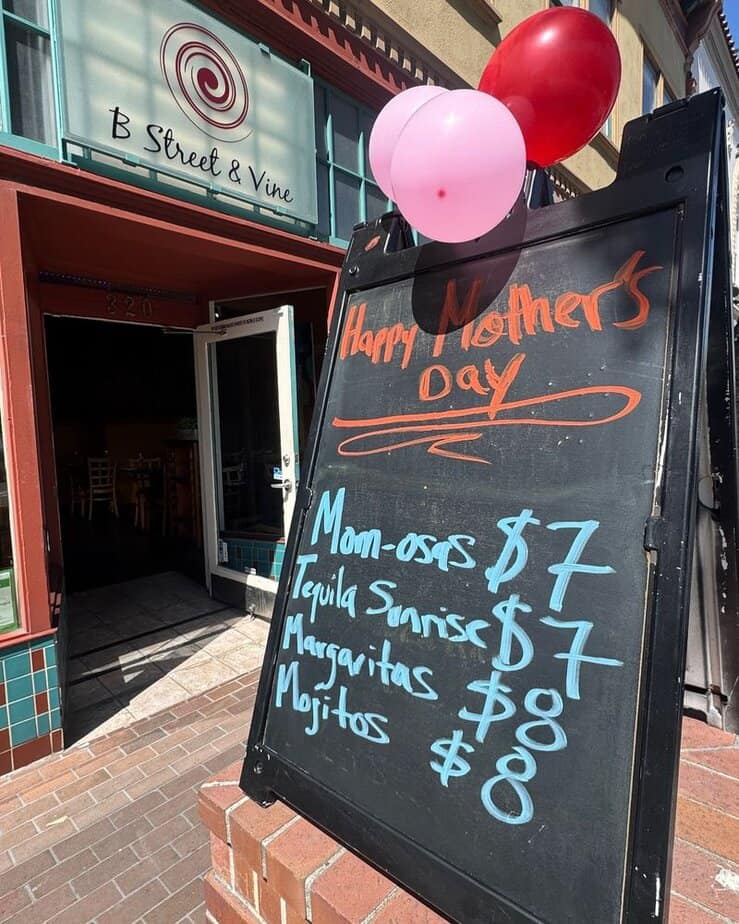 B Street & Vine
320
Happy Mother's
Day
Mom-osas $7
Tequila Sunrise $7
Margaritas $8
Mojitos $8